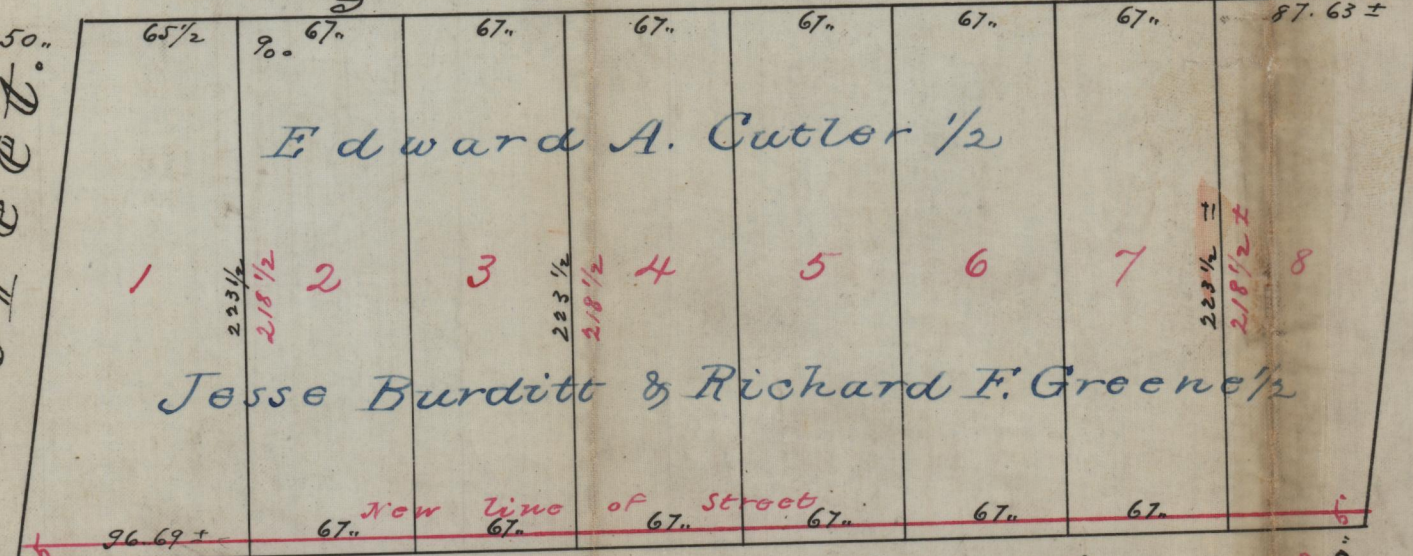 50"
65½ 67" 67" 67" 67" 67" 67" 87.63 ±
90°
Edward A. Cutler ½
1 2 3 4 5 6 7 8
223½ 218½ 223½ 218½ 223½ ± 218½ ±
Jesse Burditt & Richard F. Greene ½
New line of Street
5 96.69 ± 67" 67" 67" 67" 67" 67" 5